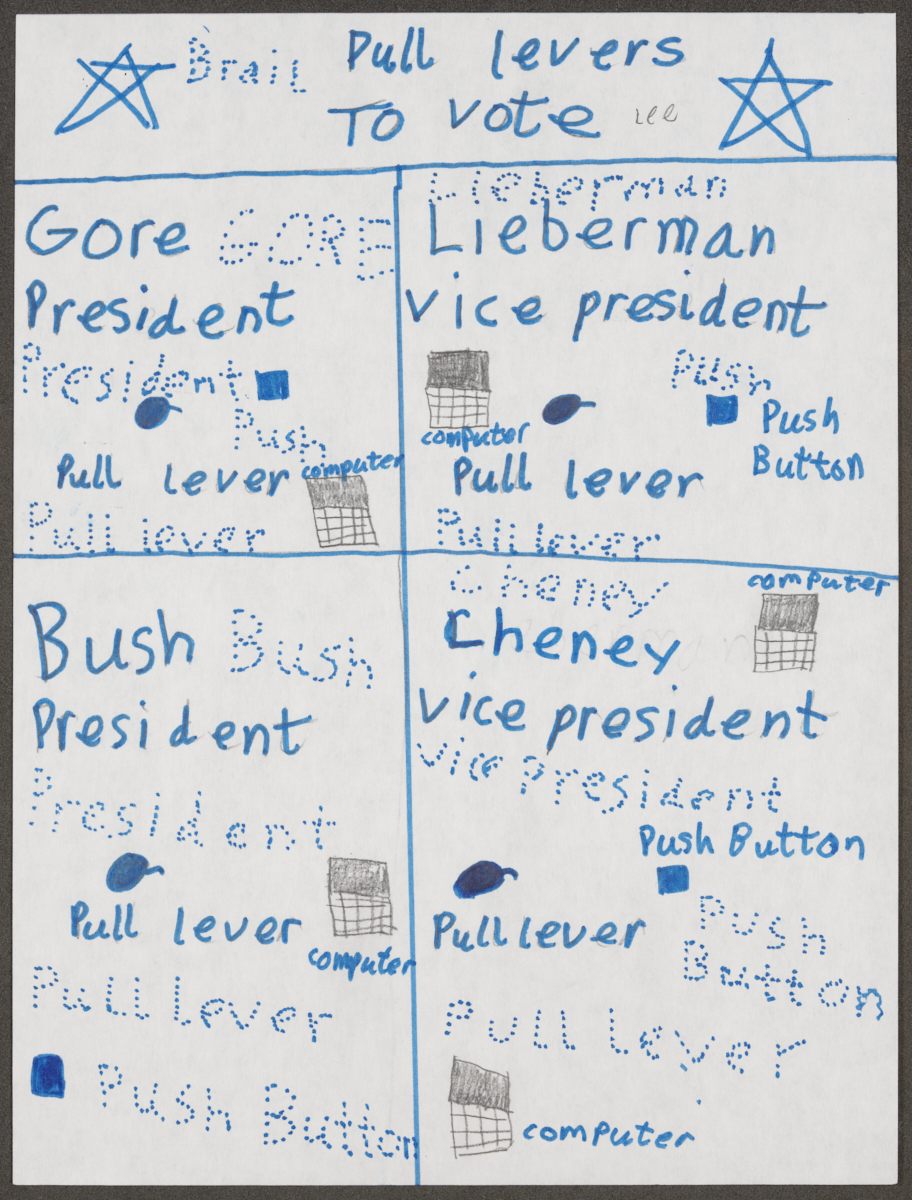 Brail Pull levers
To vote
Gore GORE
President
President
Push
computer
Pull lever
Pull lever
Lieberman
Lieberman
Vice president
Push
computer
Push
Button
Pull lever
Pull lever
Bush Bush
President
President
Pull lever
computer
Pull lever
Push Button
Cheney
computer
Cheney
Vice president
Vice President
Push Button
Pull lever
Push
Button
Pull lever
computer